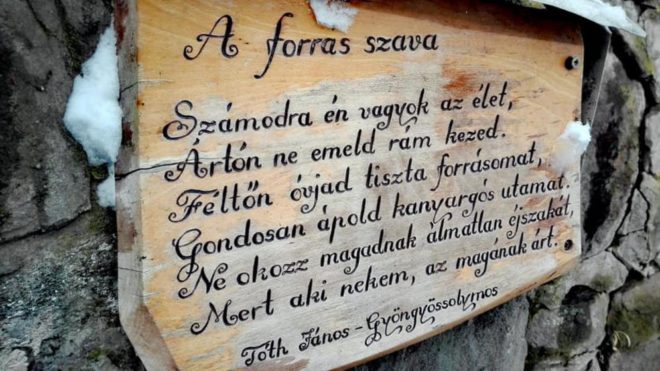 A forrás szava
Számodra én vagyok az élet,
Ártón ne emeld rám kezed.
Féltőn óvjad tiszta forrásomat,
Gondosan ápold kanyargós utamat.
Ne okozz magadnak álmatlan éjszakát,
Mert aki nekem, az magának árt.
Tóth János - Gyöngyössolymos